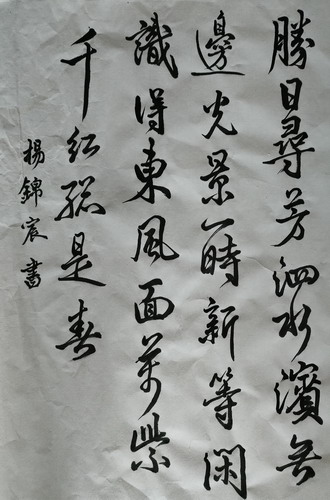 勝日尋芳泗水濱無
邊光景一時新等閑
識得東風面萬紫
千紅總是春
楊錦宸書